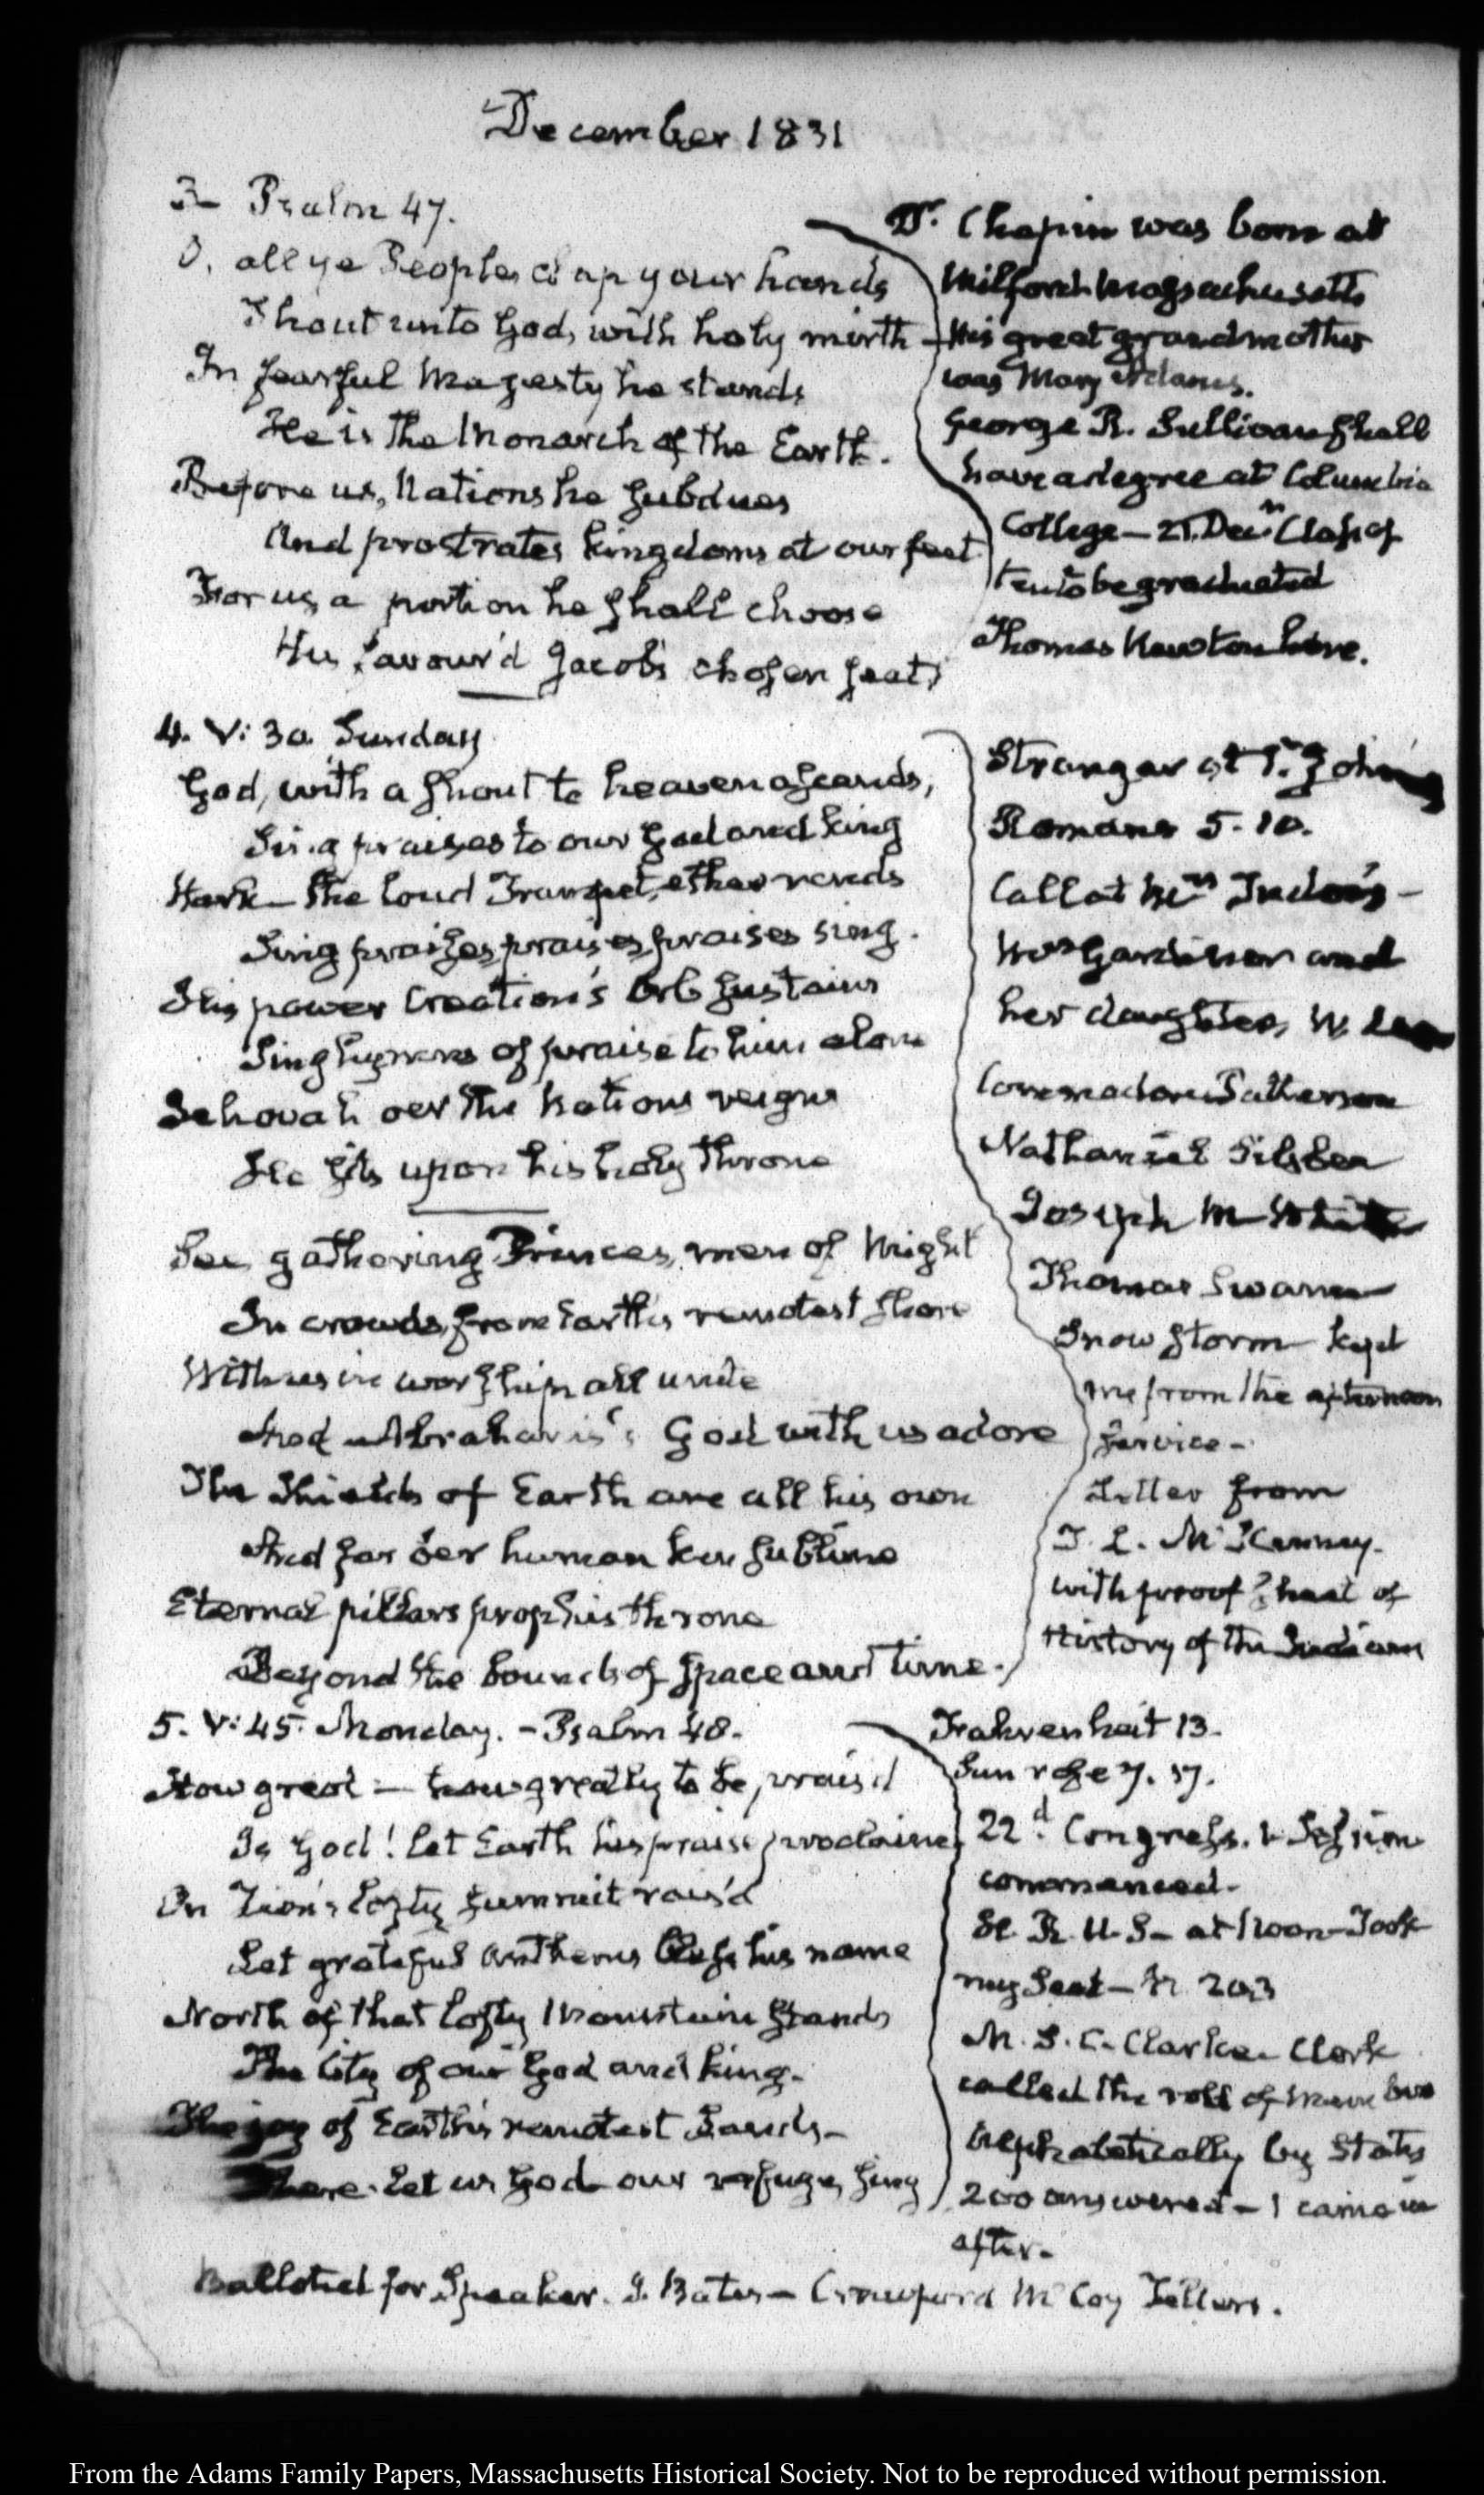 December 1831
3— Psalm 47.
O, all ye Peoples clap your hands
Shout unto God, with holy mirth—
In fearful Majesty he stands
He is the Monarch of the Earth.
Before us, Nations he subdues
And prostrates kingdoms at our feet
For us, a portion he shall choose
His favour'd Jacob's chosen seat,
Dr. Chapin was born at
Milford Massachusetts
His great grandmother
was Mary Adams.
George R. Sullivan shall
have a degree at Columbia
College— 21. Decr. Class of
ten to be graduated
Thomas Newton here.
4. V: 30. Sunday
God, with a shout to heaven ascends,
Sing praises to our God and King
Hark— the loud Trumpet, ether rends
Sing praises, praises, praises sing.
His power Creation's Orb sustains
Sing hymns of praise to him alone
Jehovah oer the Nations reigns
He sits upon his holy throne
See gathering Princes, men of Might
In crowds, from Earth's remotest shore
With us in worship all unite
And Abraham's God with us adore
The Shields of Earth are all his own
And far oer human ken sublime
Eternal pillars prop his throne
Beyond the bounds of space and time.
Stranger at St. John's
Romans 5. 10.
Call at
Mrs Gardiner and
her daughter, W.
Commodore Patterson
Nathaniel Silsbee
Joseph M White
Thomas Swann
Snow storm kept
me from the afternoon
service—
Letter from
T. L. McKenney.
with proof sheet of
History of the Indians
5. V: 45. Monday. — Psalm 48.
How great — how greatly to be prais'd
Is God! let Earth his praise proclaim,
On Zion's lofty summit rais'd
Let grateful anthems bless his name
North of that lofty Mountain stands
The City of our God and King.
The joy of Earth's remotest Lands—
There let us God our refuge, sing
Fahrenheit 13.
Sun rose 7. 17.
22d. Congress. 1. Session
commenced.
H. R. U. S— at Noon— Took
my Seat— N. 203
M. S. C. Clarke— Clerk
called the roll of Members
Alphabetically by States
200 answered— I came in
after.
Balloted for Speaker. I. Bates— Crawford McCoy Tellers.
From the Adams Family Papers, Massachusetts Historical Society. Not to be reproduced without permission.